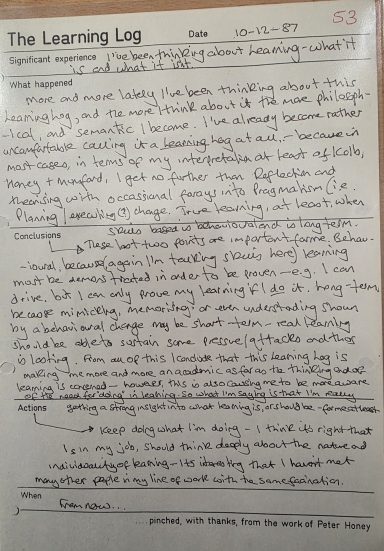 53
The Learning Log Date 10-12-87
Significant experience I've been thinking about Learning - what it
is and what it isn't.
What happened
more and more lately I've been thinking about this
Learning Log, and the more I think about it the more philosoph-
-ical, and semantic I become. I've already become rather
uncomfortable calling it a Learning Log at all - because in
most cases, in terms of my interpretation at least of Kolb,
Honey + Mumford, I get no further than Reflection and
theorising with occassional forays into Pragmatism (i.e.
Planning/executing (?) change. True learning, at least, when
skills based is behavioural and is long term.
Conclusions
These last two points are important for me. Behav-
-ioural, because (again I'm talking skills here) learning
must be demonstrated in order to be proven - e.g. I can
drive, but I can only prove my learning if I do it. Long-term
because mimicking, memorising or even understanding shown
by a behavioural change may be short-term - real learning
should be able to sustain some pressure/attacks and thus
is lasting. From all of this I conclude that this Learning Log is
making me more and more an academic as far as the thinking end of
learning is concerned - however, this is also causing me to be more aware
of the need for 'doing' in learning. So what I'm saying is that I'm really
Actions getting a strong insight into what learning is, or should be - for me at least
Keep doing what I'm doing - I think it's right that
I, in my job, should think deeply about the nature and
individuality of learning - its interesting that I haven't met
many other people in my line of work with the same fascination.
When
From now...
....pinched, with thanks, from the work of Peter Honey